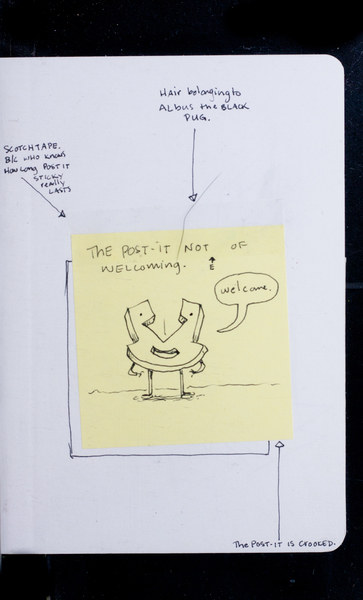 Hair belonging to
Albus the BLACK
PUG.
SCOTCH TAPE.
B/C WHO KNOWS
HOW LONG POST IT
STICKY
really
LASTS
THE POST-IT NOT OF
WELCOMING.
E
Welcome.
The POST-IT IS CROOKED.